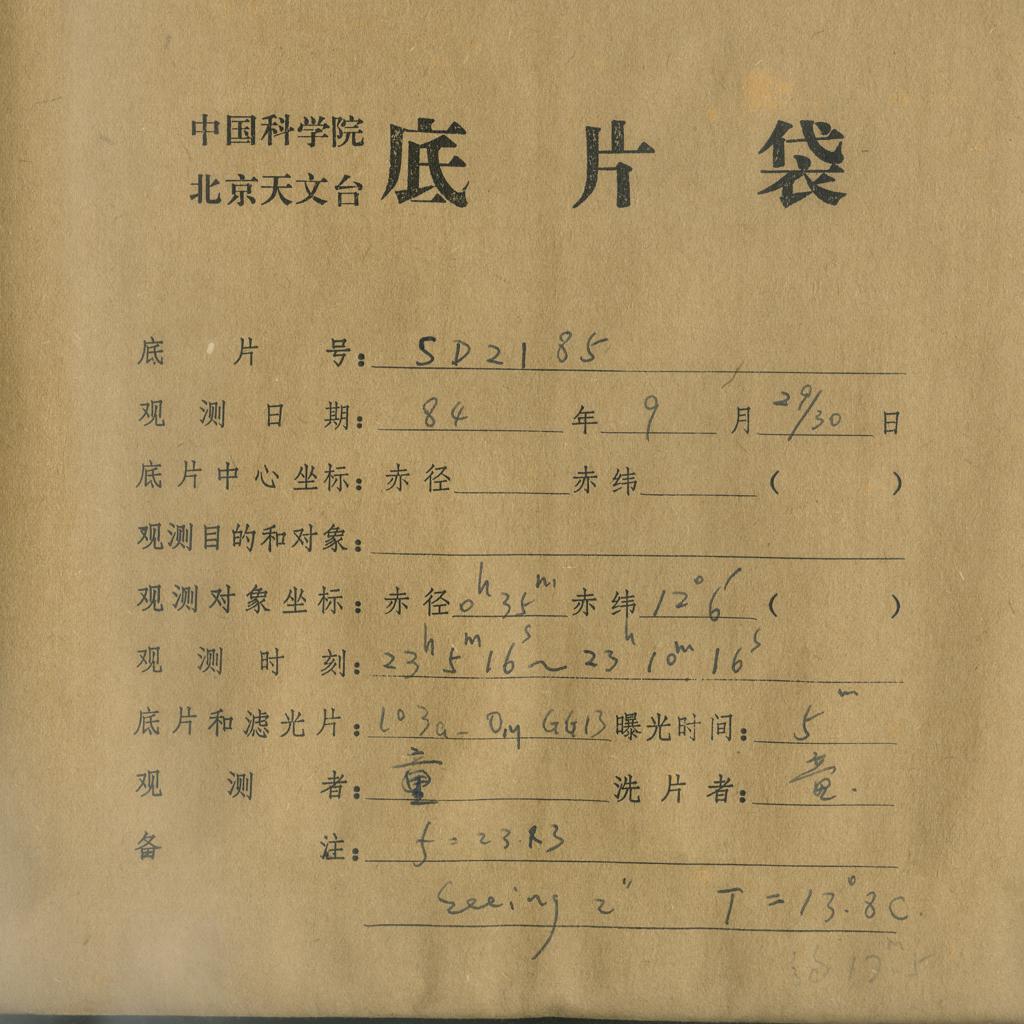 中国科学院
北京天文台 底片袋
底片号: SD2185
观测日期: 84 年 9 月 29/30 日
底片中心坐标: 赤径 赤纬 ( )
观测目的和对象:
观测对象坐标: 赤径 0h 35m 赤纬 12°6′ ( )
观测时刻: 23h 5m 16s ~ 23h 10m 16s
底片和滤光片: 103a-O, GG13 曝光时间: 5m
观测者: 童 洗片者:
备注: f = 23.
Seeing 2" T = 13°.8C.